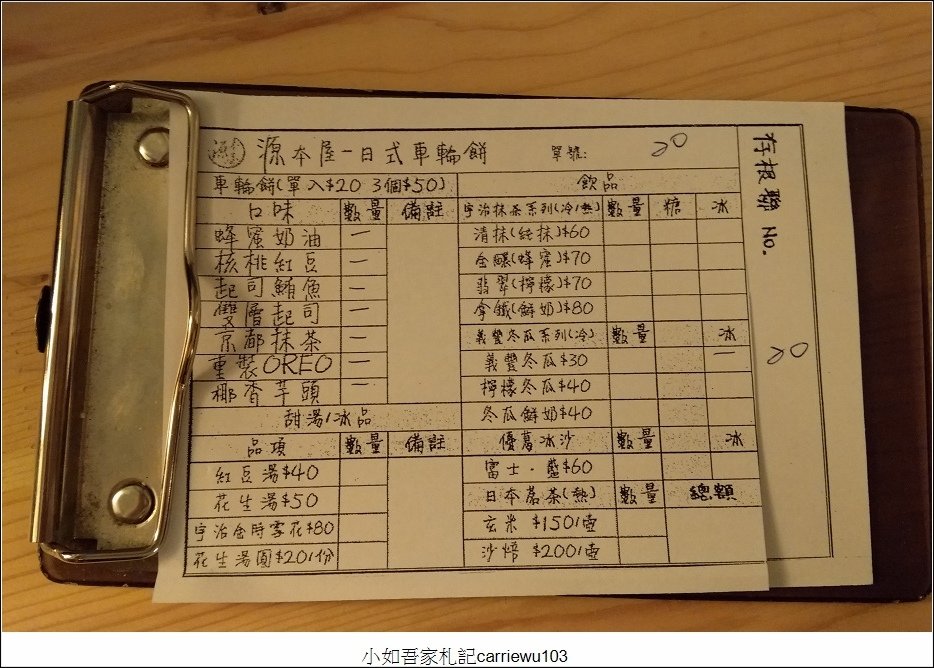 源本屋-日式車輪餅 單號: 20
車輪餅(單入$20 3個$50)
口味 數量 備註
蜂蜜奶油 一
核桃紅豆 一
起司鮪魚 一
雙層起司 一
京都抹茶 一
重裝OREO 一
椰香芋頭 一
甜湯/冰品
品項 數量 備註
紅豆湯$40
花生湯$50
宇治金時雪花$80
花生湯圓$20/份
飲品
宇治抹茶系列(冷/熱) 數量 糖 冰
清抹(純抹)$60
金磚(蜂蜜)$70
翡翠(檸檬)$70
拿鐵(鮮奶)$80
義豐冬瓜系列(冷) 數量 冰
義豐冬瓜$30 一
檸檬冬瓜$40
冬瓜鮮奶$40
優葛冰沙 數量 冰
富士.藍$60
日本茗茶(熱) 數量 總額
玄米 $150/壺
沙焙 $200/壺
存根聯 No. 20
小如吾家札記carriewu103